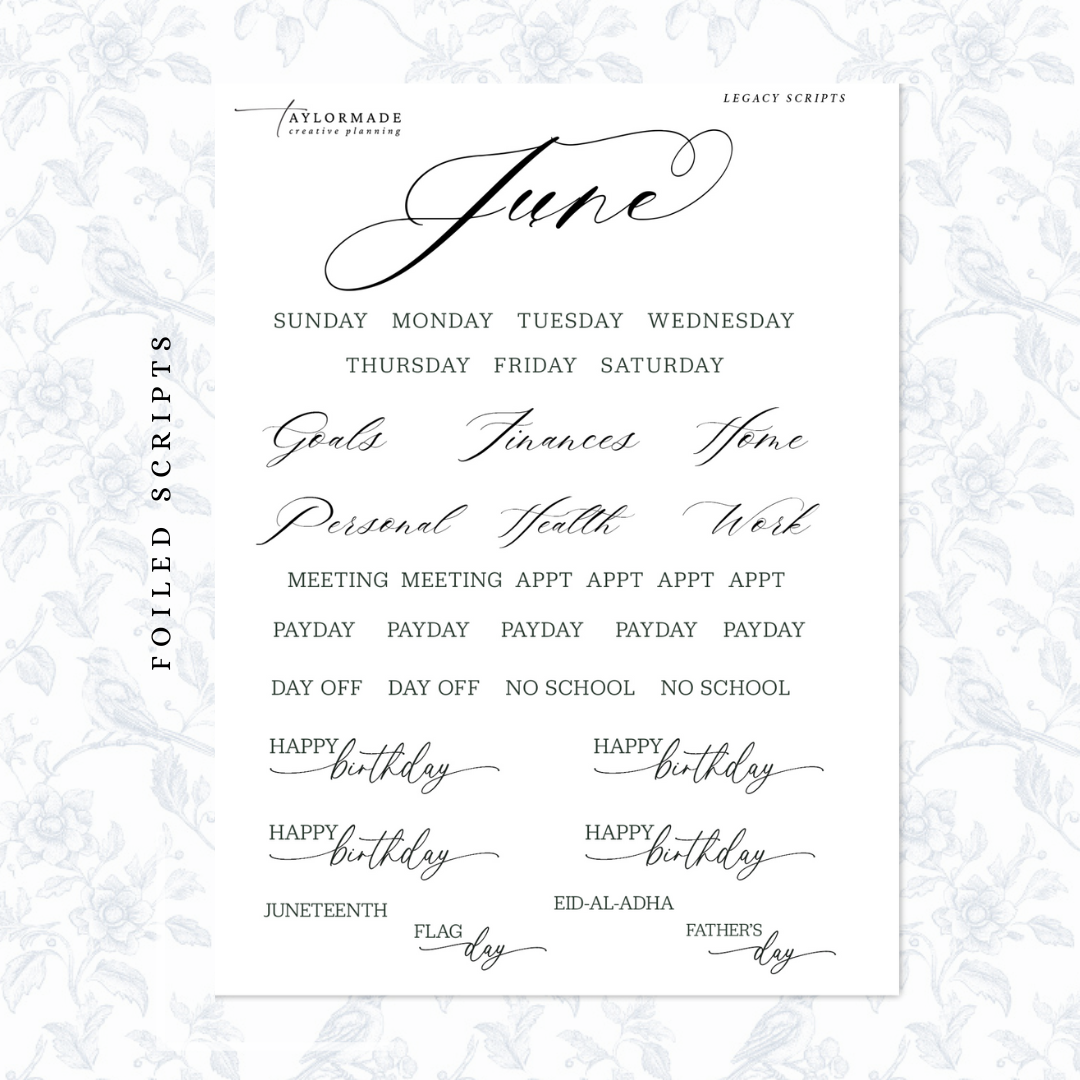 TAYLORMADE
creative planning
LEGACY SCRIPTS
June
SUNDAY MONDAY TUESDAY WEDNESDAY
THURSDAY FRIDAY SATURDAY
Goals Finances Home
Personal Health Work
MEETING MEETING APPT APPT APPT APPT
PAYDAY PAYDAY PAYDAY PAYDAY PAYDAY
DAY OFF DAY OFF NO SCHOOL NO SCHOOL
HAPPY birthday HAPPY birthday
HAPPY birthday HAPPY birthday
JUNETEENTH EID-AL-ADHA
FLAG day FATHER'S day
FOILED SCRIPTS